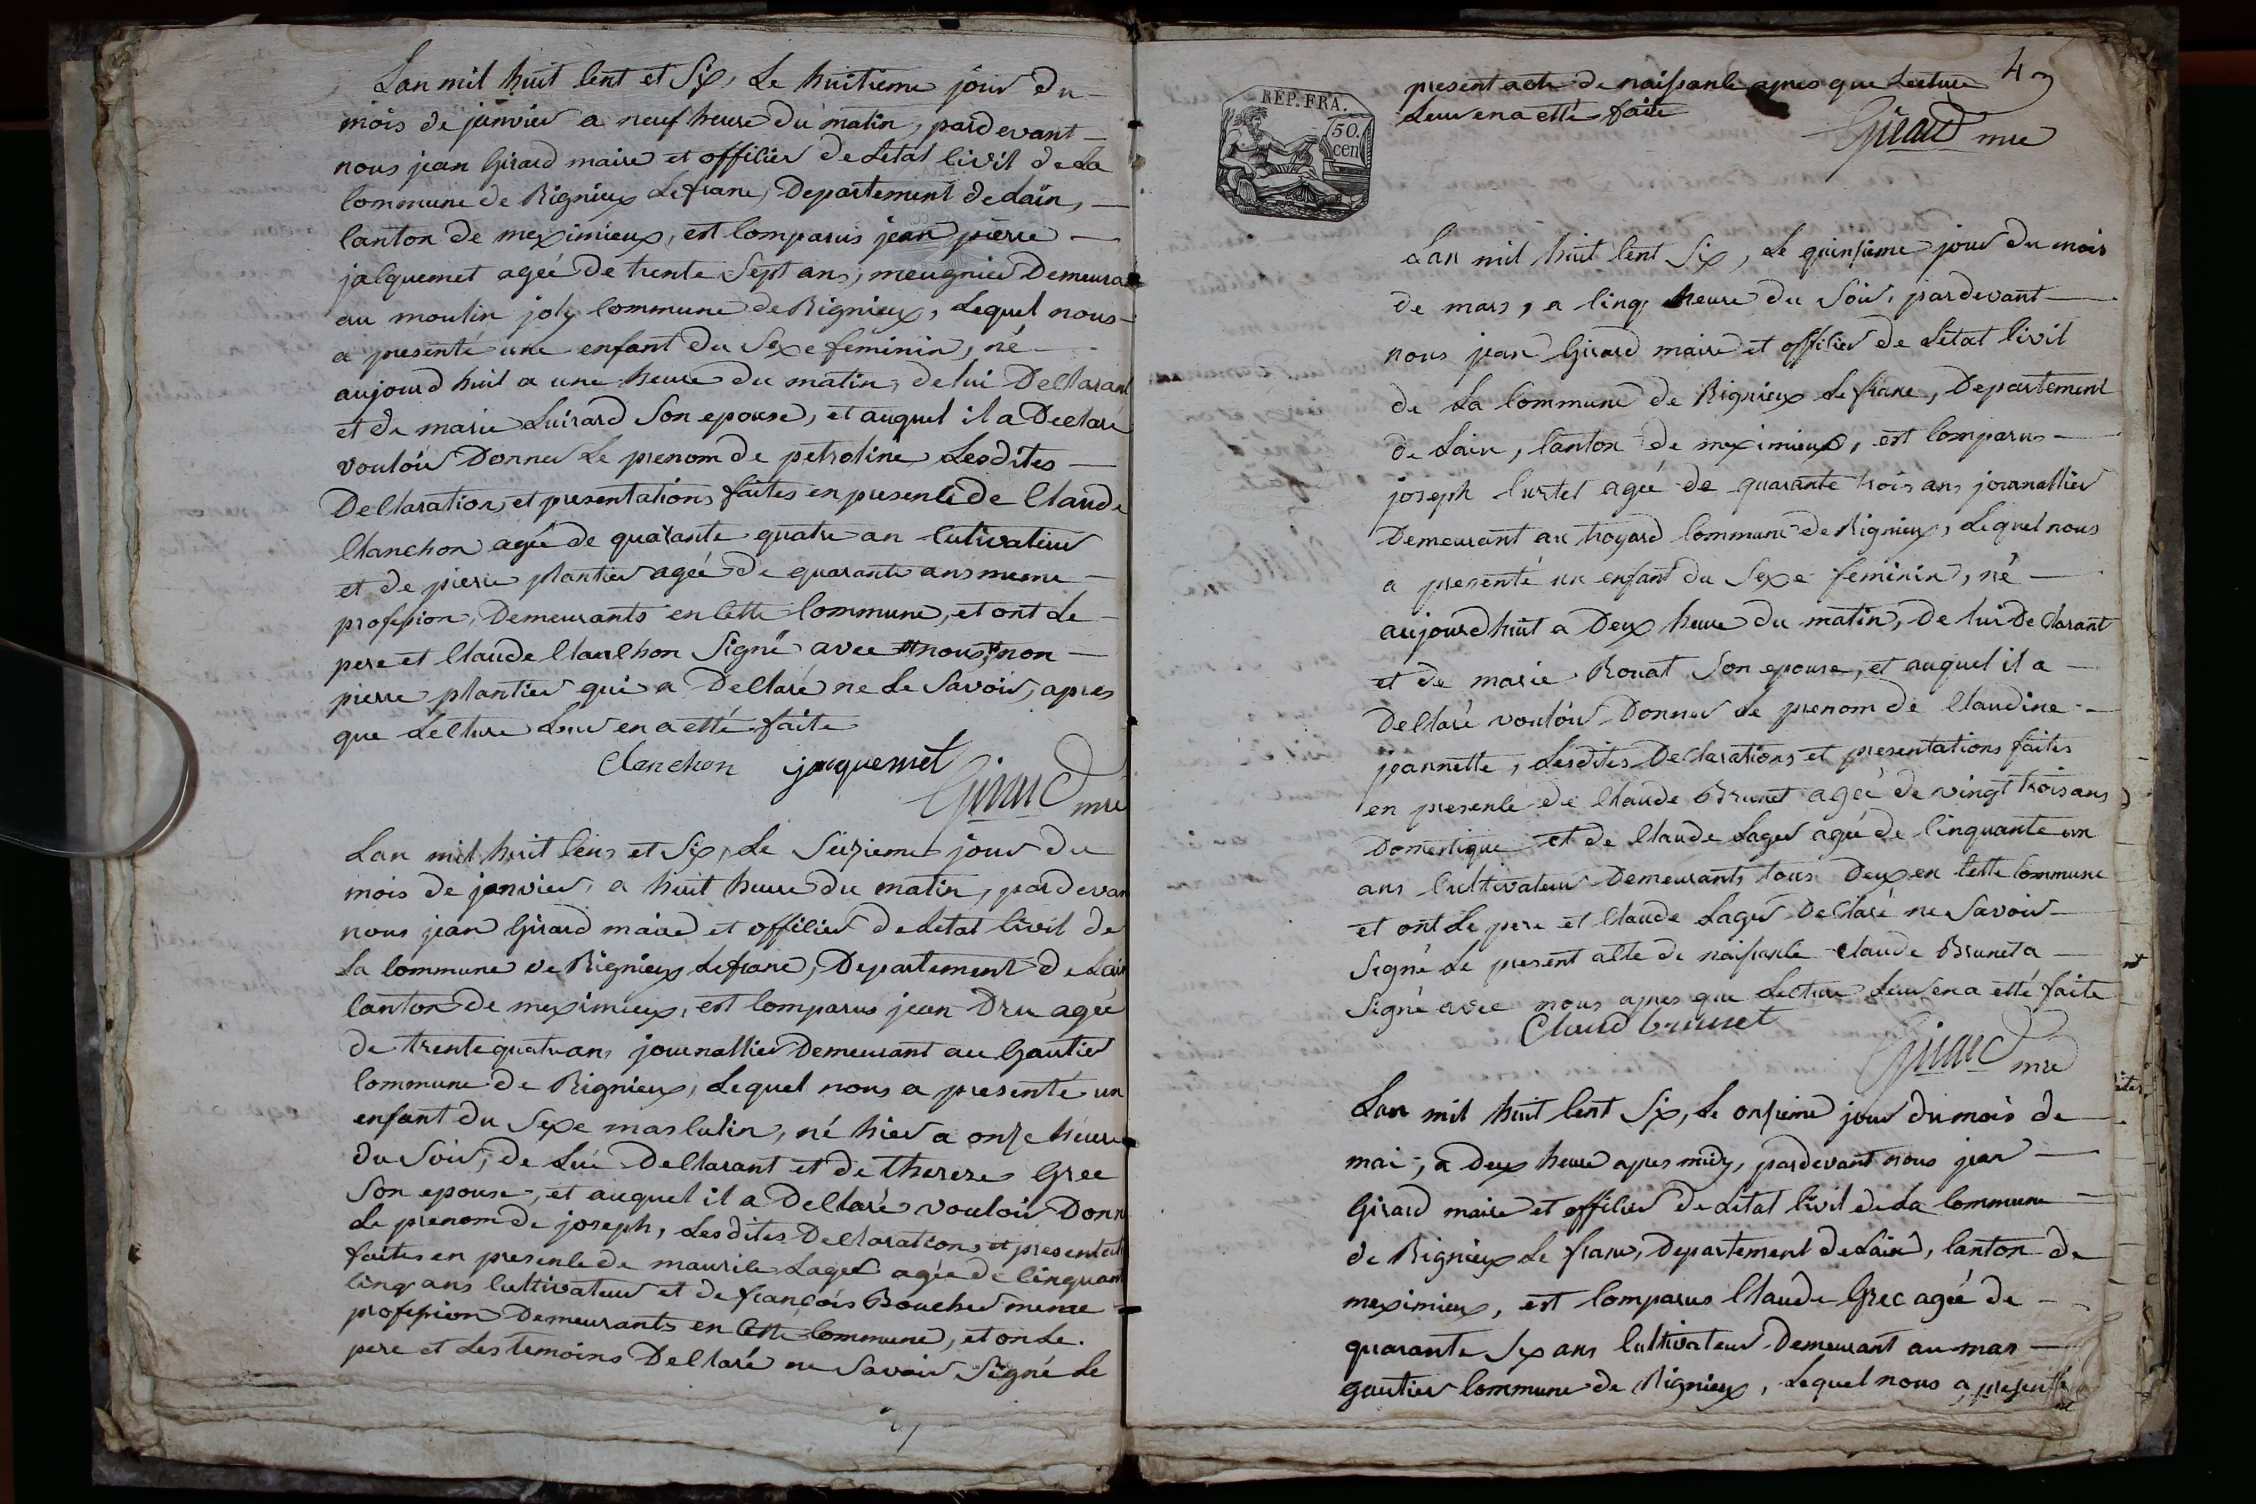 Lan mil huit Cent et Six, Le huitieme jour du
mois de janvier a neuf heure du matin, pardevant
nous jean Girard maire et officier de Letat Civil de La
Commune de Rignieux Lefranc, Departement de Lain,
Canton de meximieux, est Comparus jean pierre
jacquemet ageé de trente Sept ans, meugnier Demeurant
au moulin joly Commune de Rignieux, Lequel nous
a presenté une enfant du Sexe feminin, né
aujourd huit a une heure du matin, de lui Declarant
et de marie Luirard Son epouse, et auquel il a Declaré
vouloir Donner Le prenom de petroline Lesdites
Declaration, et presentations faites en presence de Claude
Clanchon ageé de quarante quatre an Cutivateur
et de pierre plantier ageé de quarante ans meme
profession, Demeurants en Cette Commune, et ont Le
pere et Claude Clanchon Signé avec nous, non
pierre plantier qui a Declaré ne Le Savoir, apres
que Lecture Leur en a etté faite
Clanchon jacquemet
Girard mre
Lan mil huit Cens et Six, Le Seizieme jour du
mois de janvier, a huit heure du matin, pardevant
nous jean Girard maire et officier de Letat Civil de
La Commune de Rignieux Lefranc, Departement de Lain
Canton de meximieux, est Comparus jean Dru ageé
de trente quatre ans journallier Demeurant au Gautier
Commune de Rignieux, Lequel nous a presenté un
enfant du Sexe masculin, né hier a onze heure
du Soir, de Lui Declarant et de therese Grec
Son epouse, et auquel il a Declaré vouloir Donn
Le prenom de joseph, Lesdites Declarations et presentati
faites en presence de maurice Lager ageé de Cinquant
Cinq ans Cultivateur et de françois Boucher meme
profession Demeurants en Cette Commune, et on Le
pere et Les temoins Declaré ne Savoir Signé Le
4
present acte de naissance apres que Lecture
Leur en a etté faite
Girard mre
REP. FRA.
50.
cen
Lan mil huit Cent Six, Le quinsieme jour du mois
de mars, a Cinq heure du Soir, pardevant
nous jean Girard maire et officier de Letat Civil
de La Commune de Rignieux Le franc, Departement
de Lain, Canton de meximieux, est Comparus
joseph Curtet ageé de quarante trois ans journallier
Demeurant au troyard Commune de Rignieux, Lequel nous
a presenté un enfant du Sexe feminin, né
aujourdhuit a Deux heure du matin, de lui Declarant
et de marie Rouat Son epouse, et auquel il a
Declaré vouloir Donner Le prenom de Claudine
jeannette, Lesdites Declarations et presentations faites
en presence de Claude Brunet ageé de vingt trois ans
Domestique et de Claude Lager ageé de Cinquante un
ans Cultivateur Demeurants tous Deux en Cette Commune
et ont Le pere et Claude Lager Declaré ne Savoir
Signé Le present acte de naissance Claude Brunet a
Signé avec nous apres que Lecture Leur en a etté faite
Claud brunet
Girard mre
Lan mil huit Cent Six, Le onsieme jour du mois de
mai, a Deux heure apres midy, pardevant nous jean
Girard maire et officier de Letat Civil de La Commune
de Rignieux Le franc, Departement de Lain, Canton de
meximieux, est Comparus Claude Grec ageé de
quarante Six ans Cultivateur Demeurant au mas
gautier Commune de Rignieux, Lequel nous a presenté